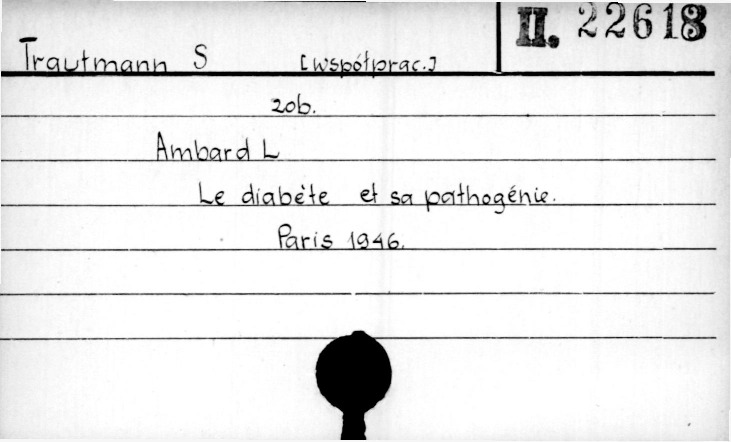 II. 22618
Trautmann S [współprac.]
zob.
Ambard L
Le diabète et sa pathogénie.
Paris 1946.